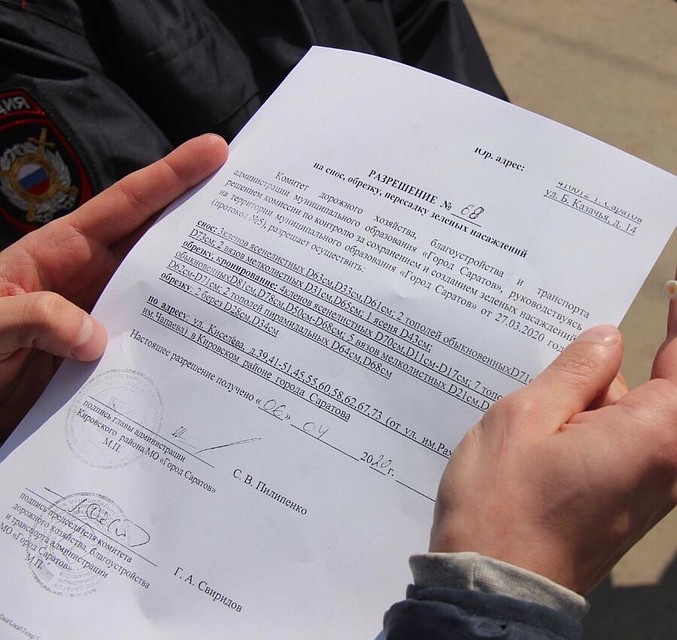 Юр. адрес:
410012 г. Саратов
ул. Б. Казачья, д. 14
РАЗРЕШЕНИЕ № 68
на снос, обрезку, пересадку зеленых насаждений
Комитет дорожного хозяйства, благоустройства и транспорта
администрации муниципального образования «Город Саратов», руководствуясь
решением комиссии по контролю за сохранением и созданием зеленых насаждений
на территории муниципального образования «Город Саратов» от 27.03.2020 год
(протокол №5), разрешает осуществить:
снос: 3кленов ясенелистных D63см,D33см,D61см; 2 тополей обыкновенныхD71с
D75см, 2 вязов мелколистных D31см,D65см; 1 ясеня D43см;
обрезку, кронирование: 4кленов ясенелистных D70см,D11см-D17см; 7 топо
обыкновенныхD81см,D78см,D50см,D68см; 5 вязов мелколистных D21см,
D62см-D71см; 2 тополей пирамидальных D64см,D68см
обрезку: 2 берез D28см,D34см
по адресу: ул. Киселёва, д.39,41-51,45,55,60,58,62,67,73 (от ул. им.Рах
им.Чапаева), в Кировском районе, города Саратова
Настоящее разрешение получено «06» 04 2020г.
подпись главы администрации
Кировского районаМО «Город Саратов»
М.П.
С. В. Пилипенко
подпись председателя комитета
дорожного хозяйства, благоустройства
и транспорта администрации
МО «Город Саратов»
М.П.
Г. А. Свиридов